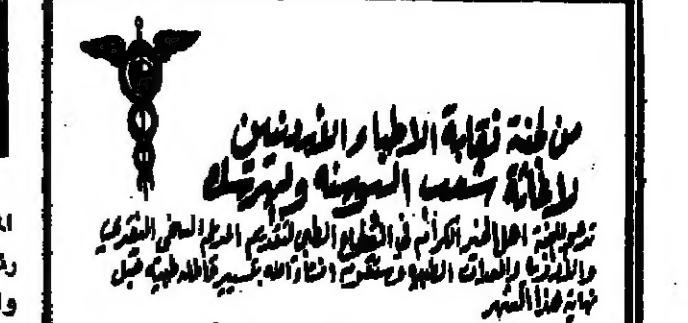 من لجنة نقابة الاطباء الأردنيين
لإغاثة شعب البوسنه والهرسك
تدعو اللجنة اهل الخير الكرام في القطاع الطبي لتقديم الدعم السخي النقدي
والأدوية والمعدات الطبية وستقوم انشاء الله بتسيير قافله طبية قبل
نهاية هذا الشهر